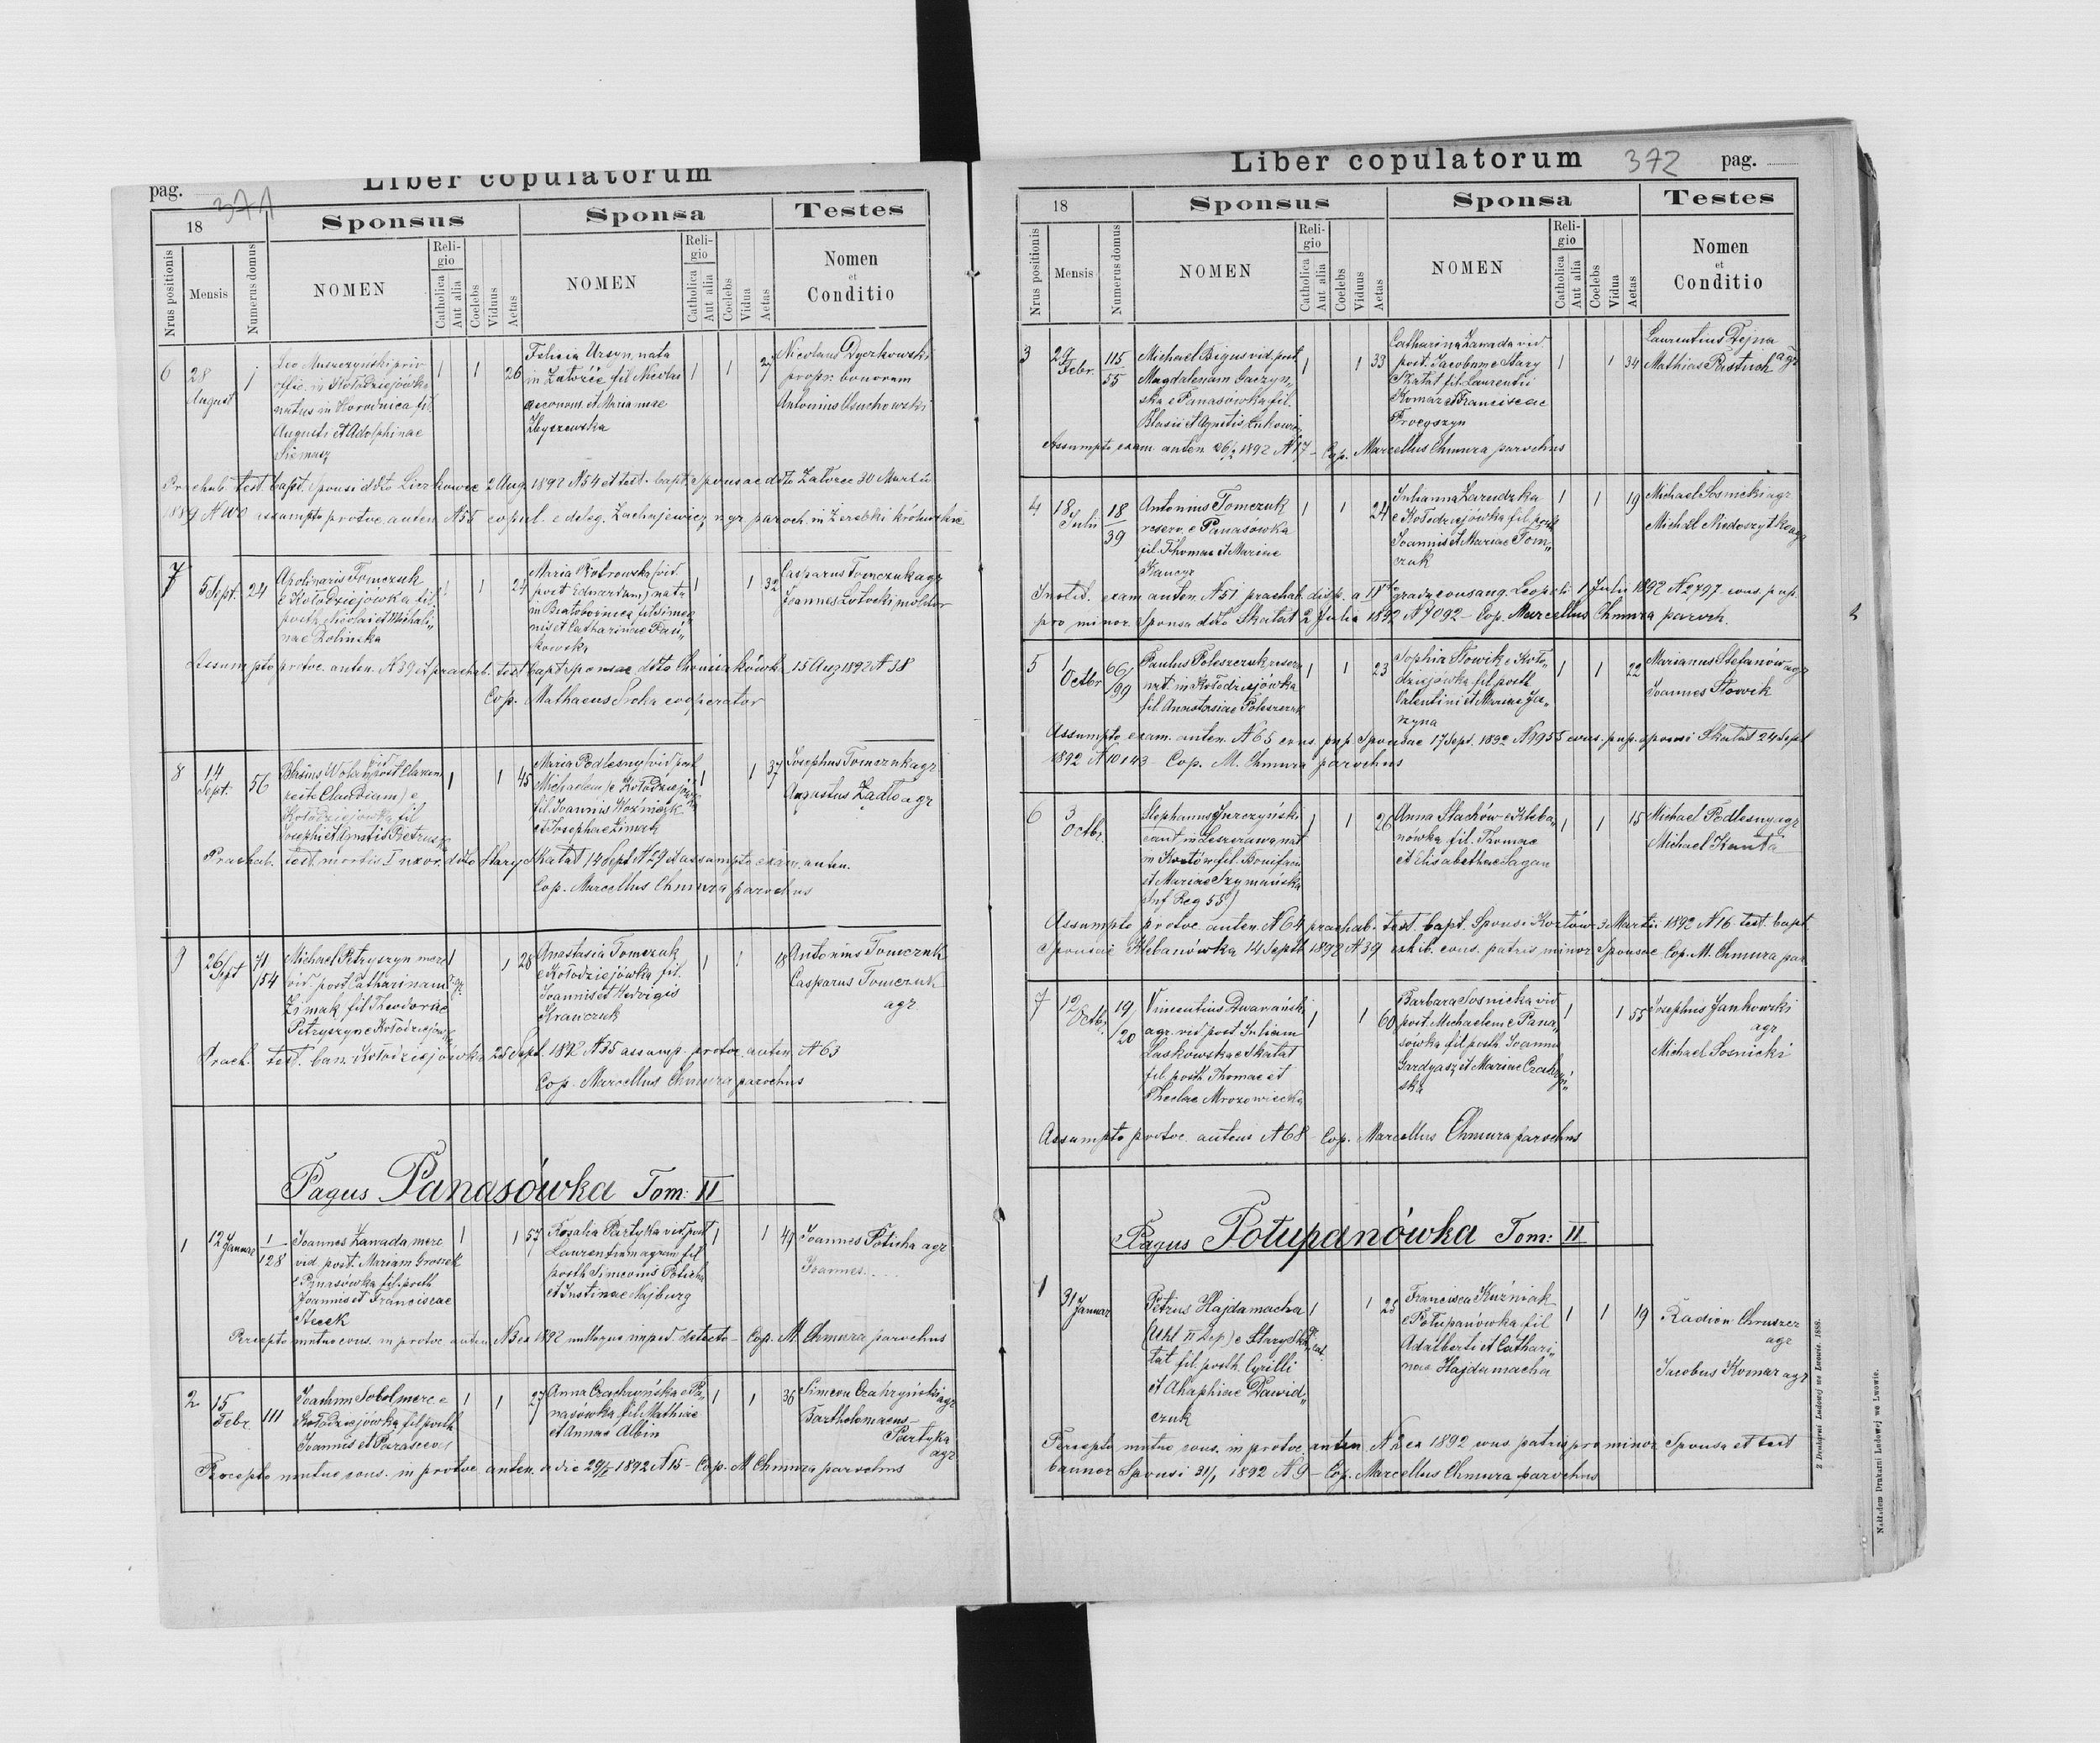 pag.
371
Liber copulatorum
18
Sponsus
Sponsa
Testes
Nrus positionis
Mensis
Numerus domus
NOMEN
Religio
Catholica
Aut alia
Coelebs
Viduus
Aetas
NOMEN
Religio
Catholica
Aut alia
Coelebs
Vidua
Aetas
Nomen
et
Conditio
6
28
August
1
Leo Muszczynski priv
offic. in Kołodziejówka
natus in Horodnica fil.
Augusti et Adolphinae
Siemasz
1 1 26
Felicia Ursyn, nata
in Załoźce fil. Nicolai
oeconom. et Mariannae
Zbyszewska
1 1 27
Nicolaus Dyczkowski
propr. bonorum
Antonius Osuchowski
test. bapt. sponsi ddto 2 Aug. 1892 N 54 et test. bapt. sponsae ddto Załoźce 30 Martii
1889 assumpto protoc. anten. N 55 copul. e deleg. Zachajewicz r. gr. paroch. in Zerebki królewskie
7
5 Sept.
24
Apolinaris Tomczuk
e Kołodziejówka fil.
posth. Nicolai et Michali„
nae Rolinska
1 1 24
Maria Piotrowska (vid.
post Eduardum) nata
in Białobożnica fil. Simeo„
nis et Catharinae
1 1 32
Casparus Tomczuk agr
Joannes Zołocki molitor
Assumpto protoc. anten. N 39 et praehab. test. bapt. sponsae ddto 15 Aug 1892 N 38
Cop. Mathaeus Sroka cooperator
8
14
Sept.
56
Blasius Wołany vid. post Claram
recte Claudiam) e
Kołodziejówka fil
Josephi et Agnetis Pietruszka
1 1 45
Maria Podlesny (vid. post
Michaelem) e Kołodziejówka
fil. Joannis Woźniczk
et Josephae Zimak
1 1 37
Josephus Tomczuk agr
Augustus Zadło agr
Praehab. test. mortis I uxor. ddto Stary Skałat 14 Sept N 29 et assumpto exam. anten.
Cop. Marcellus Chmura parochus
9
26
Sept
71
/54
Michael Petryszyn merc
vid. post Catharinam
Zimak fil. Theodorae
Petryszyn e Kołodziejówka
1 gr. 1 28
Anastasia Tomczuk
e Kołodziejówka fil.
Joannis et Hedvigis
Krawczuk
1 1 18
Antonius Tomczuk
Casparus Tomczuk
agr
Praeh. test. ban. Kołodziejówka 25 Sept. 1892 N 35 assump. protoc. anten. N 63
Cop. Marcellus Chmura parochus
Pagus Panasówka Tom: II
1
12
Januar
1
128
Joannes Zawada, merc
vid. post. Mariam Groszek
e Panasówka fil. posth
Joannis et Franciscae
Stecek
1 1 57
Rosalia Partyka vid. post
Laurentium agram fil.
posth Simeonis Poticha
et Justinae Najburg
1 1 47
Joannes Poticha agr
Joannes....
Percepto mutuo cons. in protoc. anten. N 3 ex 1892 nulloque imped. detecto – Cop. M. Chmura parochus
2
15
Febr.
111
Joachim Sobol merc e
Kołodziejówka fil. posth
Joannis et Parascevae
1 1 27
Anna Czachryńska e Pa„
nasówka fil. Mathiae
et Annae Albin
1 1 36
Simeon Czahryński agr
Bartholomaeus
Partyka
agr
Percepto mutuo cons. in protoc. anten. a die 29/I 1892 N 15 – Cop. M Chmura parochus
Liber copulatorum
372
pag.
18
Sponsus
Sponsa
Testes
Nrus positionis
Mensis
Numerus domus
NOMEN
Religio
Catholica
Aut alia
Coelebs
Viduus
Aetas
NOMEN
Religio
Catholica
Aut alia
Coelebs
Vidua
Aetas
Nomen
et
Conditio
3
29
Febr.
115
55
Michael Bigus vid. post
Magdalenam Gaczyn„
ska e Panasówka fil.
Blasii et Agnetis
1 1 33
Catharina Zawada vid.
post. Jacobum e Stary
Skałat fil. Laurentii
Komar et Franciscae
Procyszyn
1 1 34
Laurentius Dejna
Mathias Pastuch agr
Assumpto exam. anten 26/2 1892 N 17 – Cop. Marcellus Chmura parochus
4
18
Julii
18
39
Antonius Tomczuk
reserv. e Panasówka
fil. Thomae et Mariae
1 1 24
Julianna Zarudzka
e Kołodziejówka fil. posth
Joannis et Mariae Tom„
czuk
1 1 19
Michael Sosnicki agr
Michael Niedoszytko agr
exam. anten. N 51 praehab. disp. a gradu consang. Leopoli 1 Julii 1892 N 2797 cons. pup.
pro minor. Sponsa ddto Skałat 2 Julii 1892 N 7092 – Cop. Marcellus Chmura paroch.
5
1
Octbr
66
/99
Paulus Poleszczuk reserv
nat. in Kołodziejówka
fil. Anastasiae Poleszczuk
1 1 23
Sophia Słowik e Koło„
dziejówka fil. posth
Valentini et Mariae Ja„
rzyna
1 1 22
Marianus Stefanów agr
Joannes Słowik
Assumpto exam. anten. N 65 cons. pup. Sponsae 17 Sept. 1892 N 7955 cons. pup. sponsi Skałat 24 Sept
1892 N 10143 – Cop. M. Chmura parochus
6
3
Octbr
Stephanus Jurczyński
in nat
in Kozłów fil. Bonifacii
et Mariae Szymańska
Inf Reg 55)
1 1 26
Anna Stachów e Kleba„
nówka fil. Thomae
et Elisabethae Sagan
1 1 15
Michael Podlesny agr
Michael Kanta
Assumpto protoc. anten. N 64 praehab. test. bapt. Sponsi Kozłów 3 Martii 1892 N 16 test. bapt.
Sponsae Klebanówka 14 Septb 1892 N 39 exhib. cons. patris minor. Sponsae Cop. M. Chmura par.
7
12
Octbr
19
/20
Vincentius Dwarański
agr. vid post Juliam
Laskowska e Skałat
fil. posth Thomae et
Theclae Mrozowiecka
1 1 60
Barbara Sosnicka vid
post. Michaelem e Pana„
sówka fil. posth. Joannis
Gardyasz et Mariae Czahryń„
ska
1 1 55
Josephus Jankowski
agr
Michael Sosnicki
Assumpto protoc. antens N 68 – Cop. Marcellus Chmura parochus
Pagus Połupanówka Tom: II
1
31
Januar
Petrus Hajdamacha
(Uhl II Dep) e Stary Ska„
łat fil. posth. Cyrilli
et Ahaphiae Dawid„
czuk
1 gr. cat. 1 25
Francisca Kuźniak
e Połupanówka fil
Adalberti et Cathari„
nae Hajdamacha
1 1 19
Radion Chruszcz
agr
Jacobus Komar agr
Percepto mutuo cons. in protoc. anten. N 2 ex 1892 cons. patris pro minor. Sponsa et test
bannor Sponsi 31/1 1892 N 9 – Cop. Marcellus Chmura parochus
Z Drukarni Ludowej we Lwowie. 1888.
Nakładem Drukarni Ludowej we Lwowie.